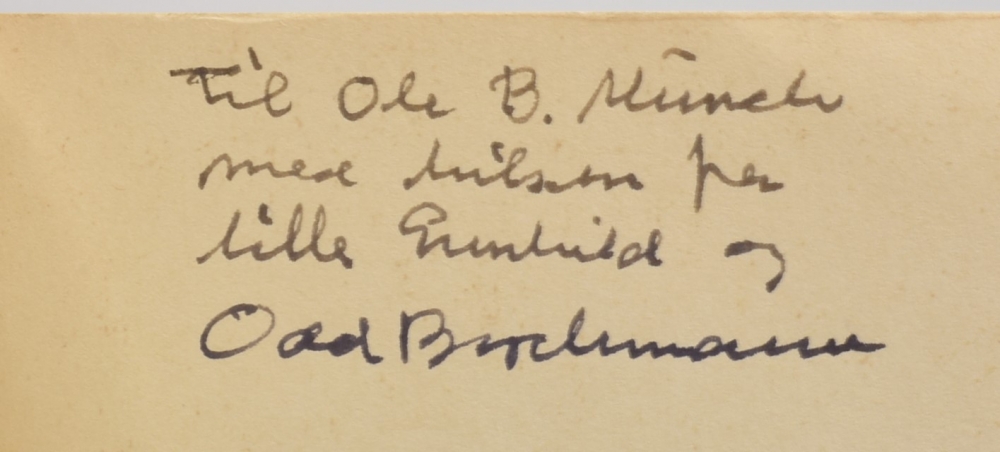 Til Ole B. Münch
med hilsen fra
lille Gunhild og
Odd Brochmann